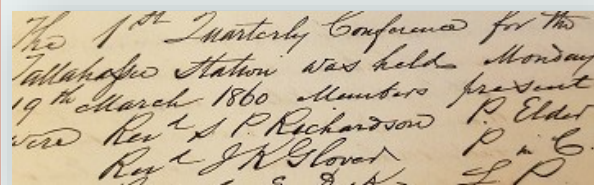 The 1st Quarterly Conference for the
Tallahassee Station was held Monday
19th March 1860 Members present
were Revd S. P. Richardson P. Elder
Revd J K Glover P in C.
L P